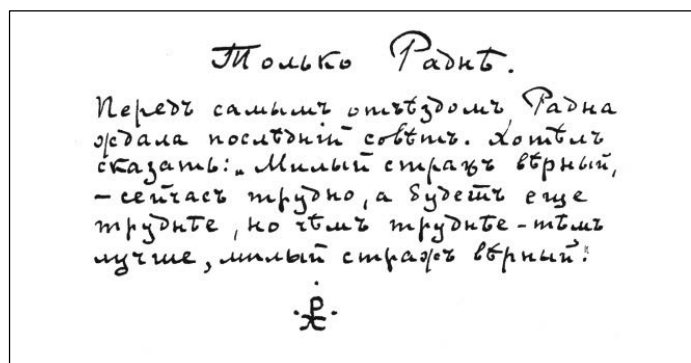 Только Раднѣ.
Передъ самымъ отъѣздомъ Радна
ждала послѣднiй совѣтъ. Хотѣлъ
сказать: „Милый стражъ вѣрный,
– сейчасъ трудно, а будетъ еще
труднѣе, но чѣмъ труднѣе – тѣмъ
лучше, милый стражъ вѣрный."